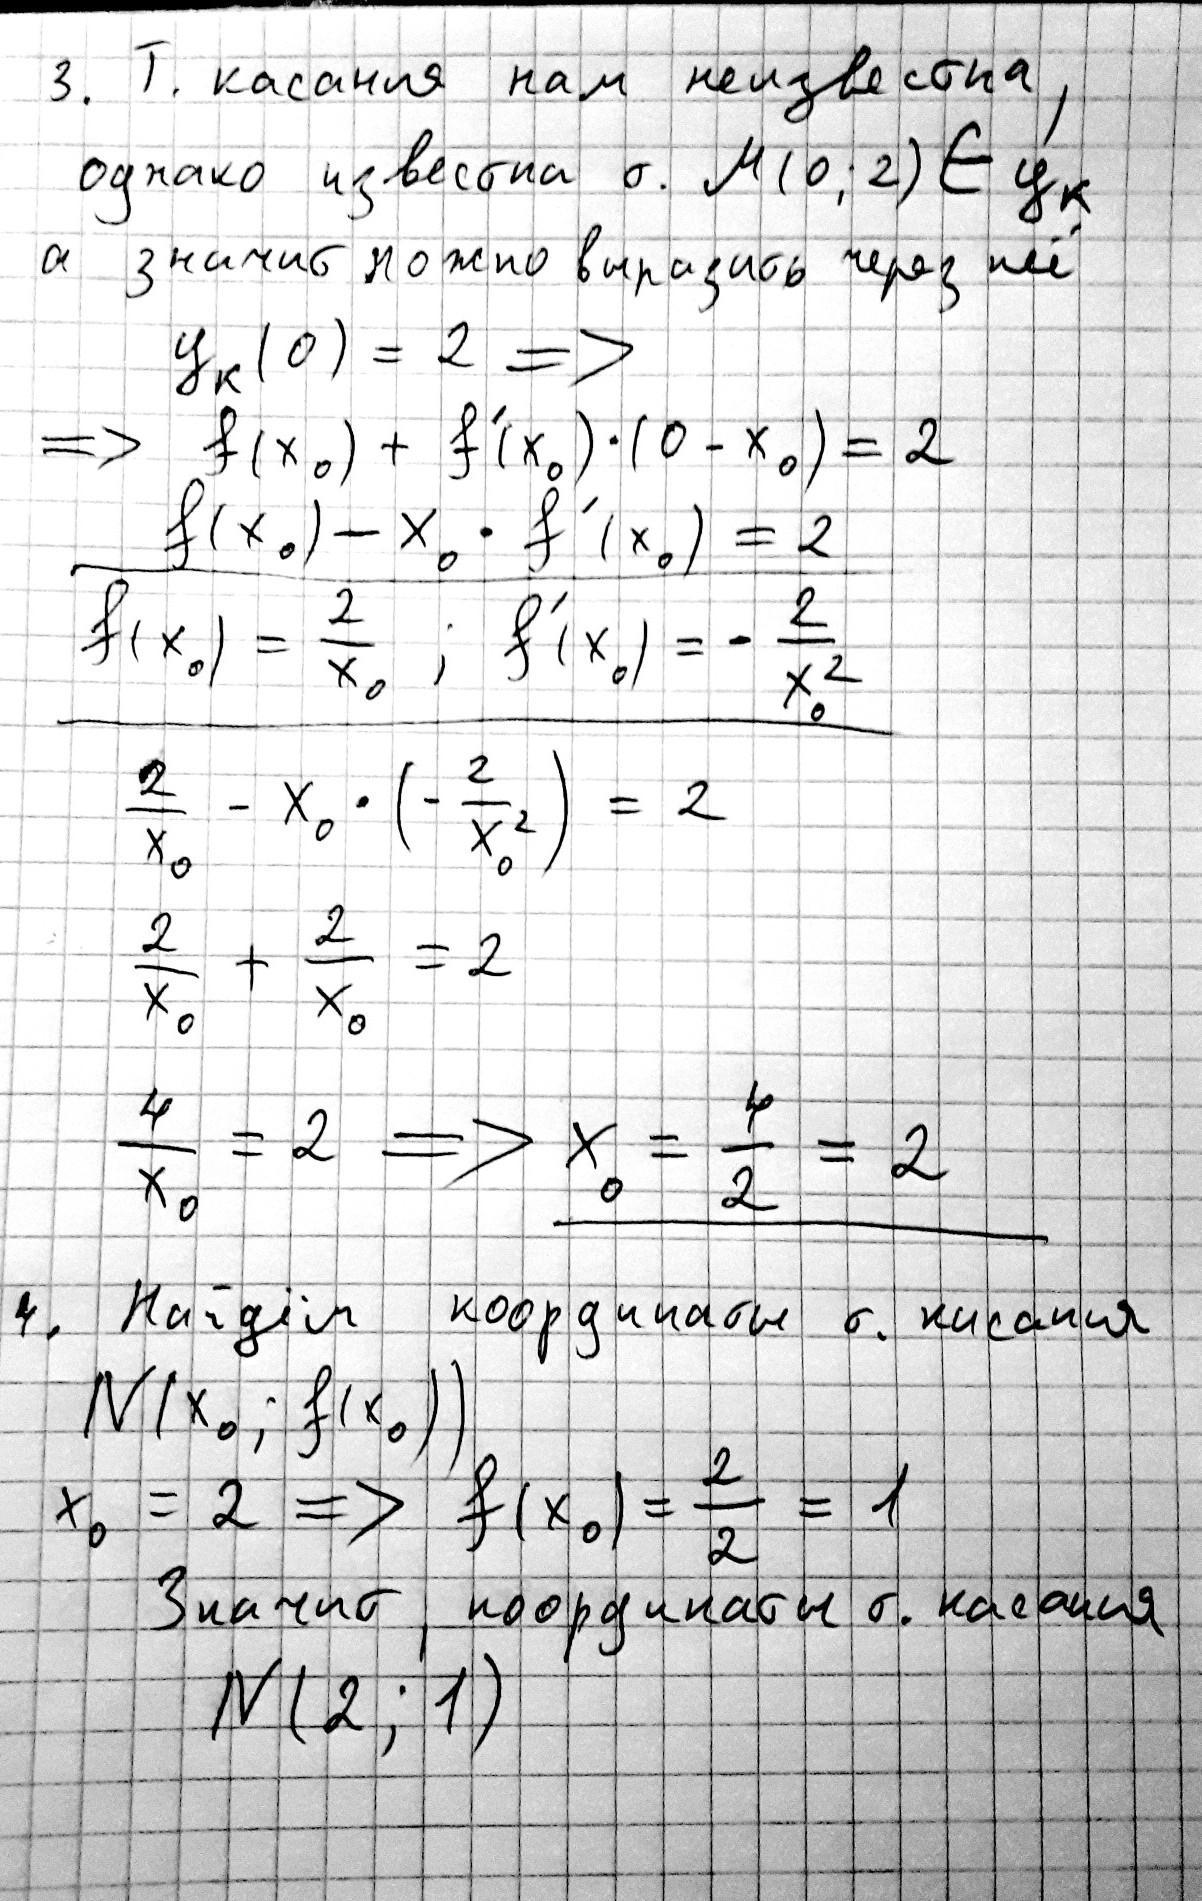 3. Т. касания нам неизвестна,
однако известна т. M(0; 2) ∈ yк
а значит можно выразить через неё
yк(0) = 2 =>
=> f(x₀) + f'(x₀)·(0 - x₀) = 2
f(x₀) - x₀ · f'(x₀) = 2
f(x₀) = 2/x₀ ; f'(x₀) = - 2/x₀²
2/x₀ - x₀ · (- 2/x₀²) = 2
2/x₀ + 2/x₀ = 2
4/x₀ = 2 => x₀ = 4/2 = 2
4. Найдём координаты т. касания
N(x₀; f(x₀))
x₀ = 2 => f(x₀) = 2/2 = 1
Значит, координаты т. касания
N(2; 1)